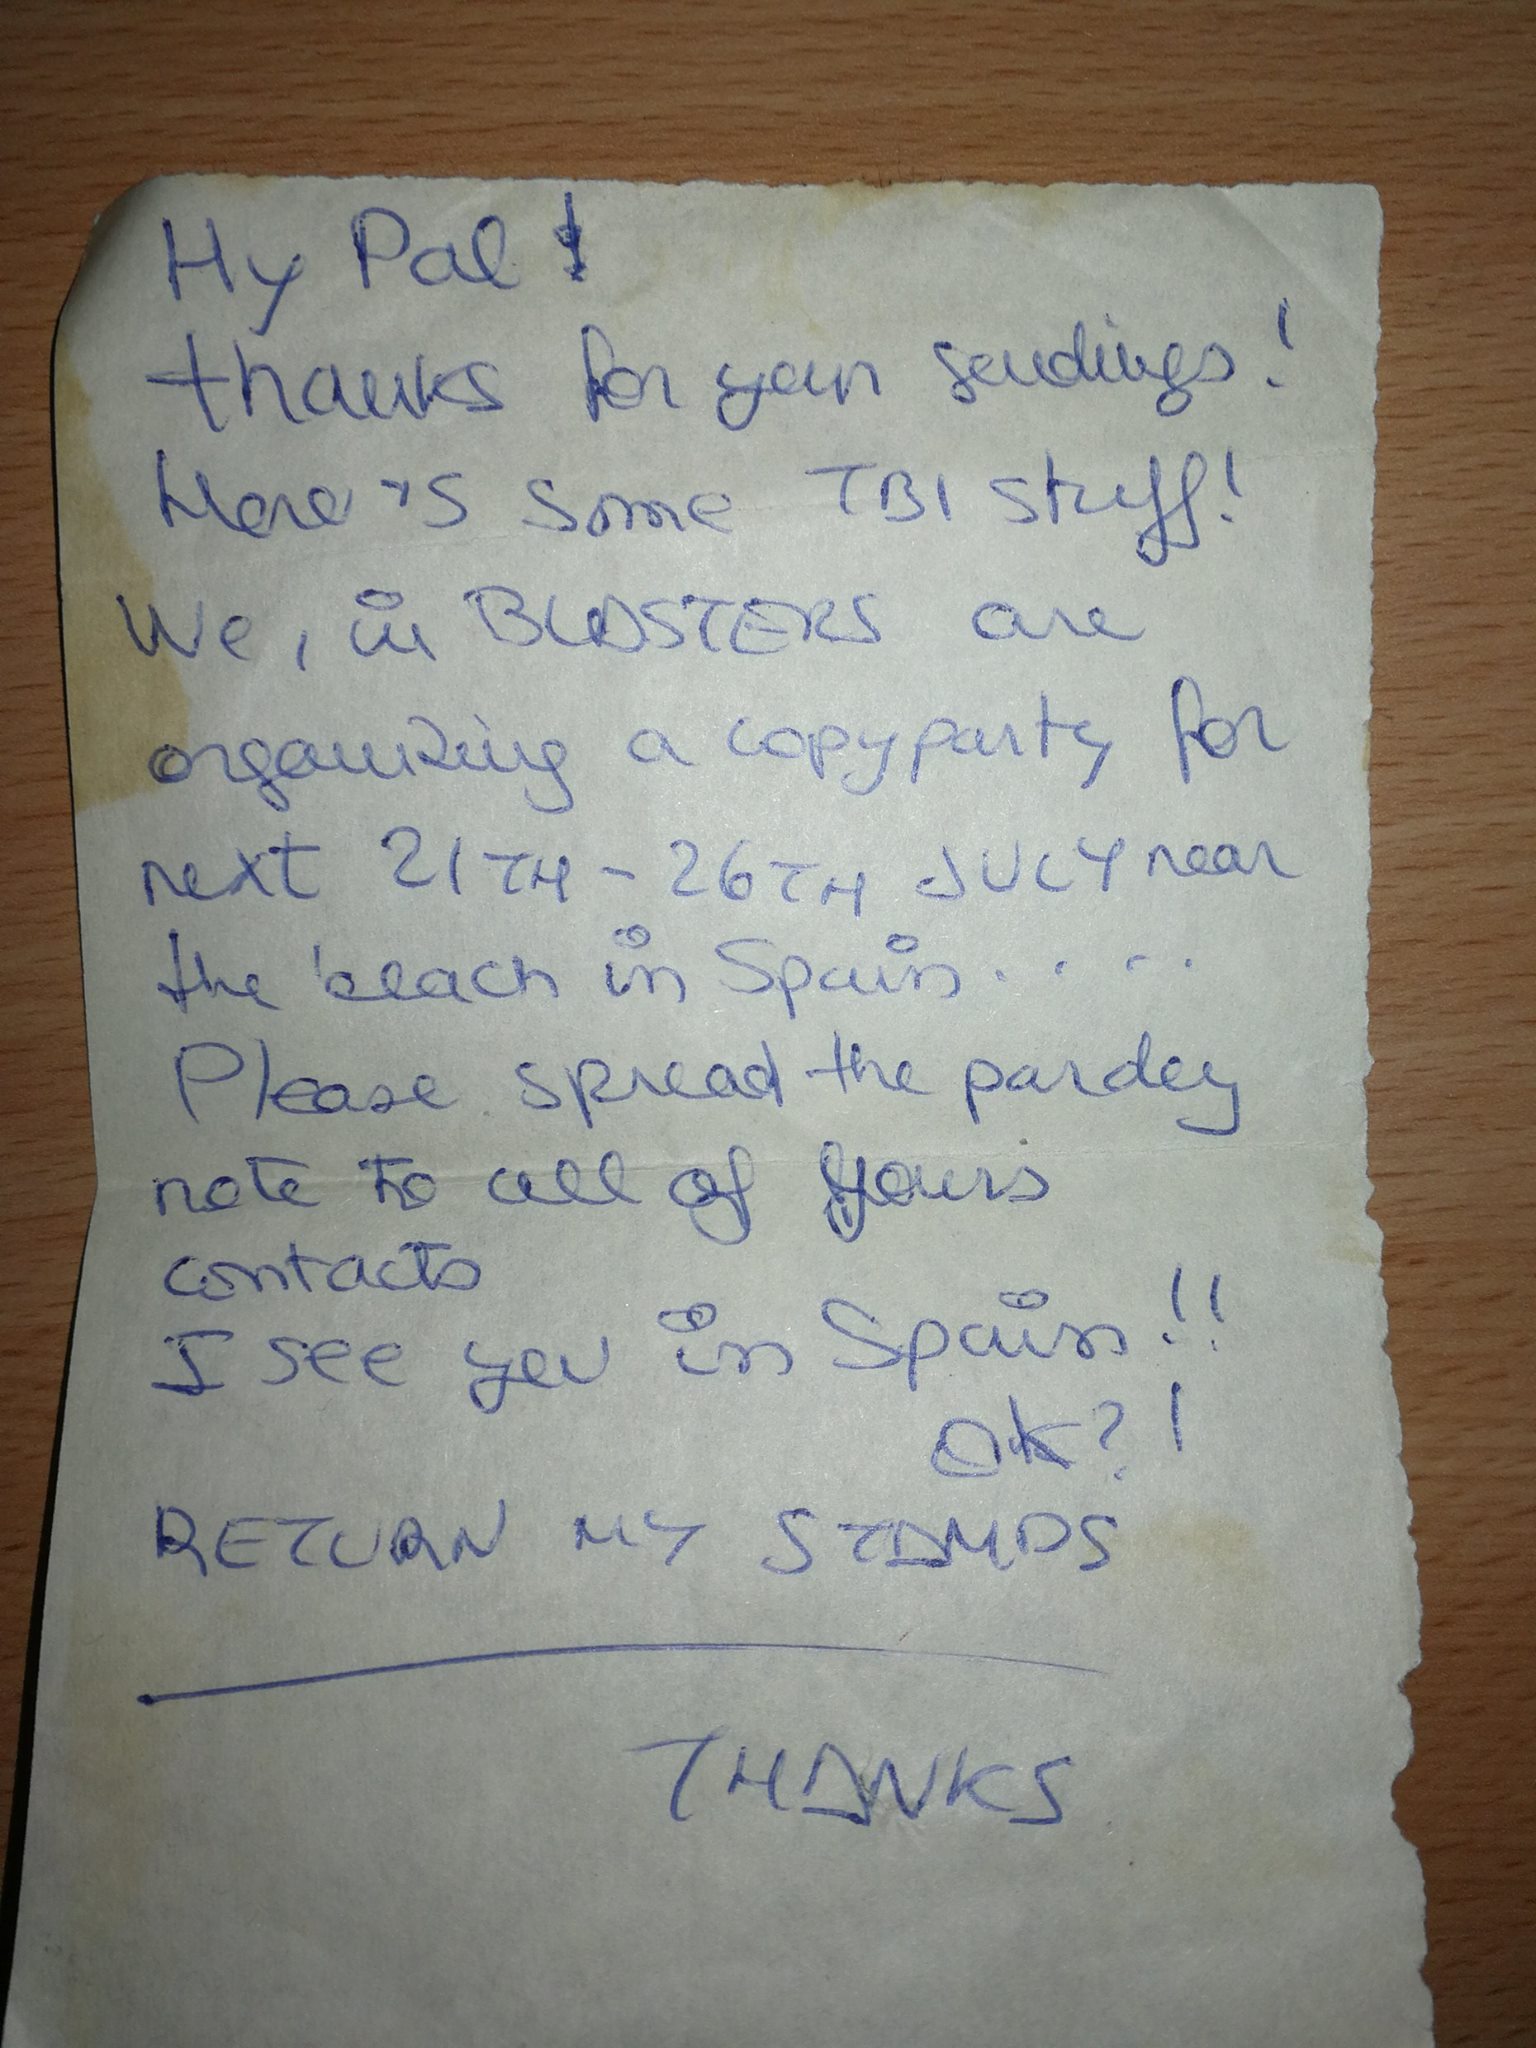 Hy Pal!
thanks for your sendings!
Here's some TBI stuff!
We, in BLASTERS are
organizing a copyparty for
next 21TH - 26TH JULY near
the beach in Spain....
Please spread the pardey
note to all of yours
contacts
I see you in Spain!!
OK?!
RETURN MY STAMPS
THANKS